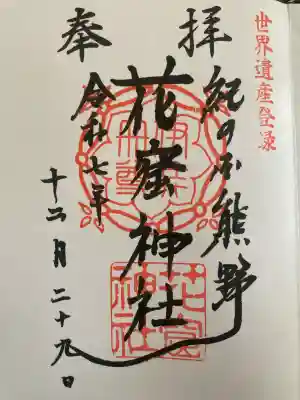 世界遺産登録
奉拝
紀の国熊野
花窟神社
令和七年
十二月二十九日
花窟神社